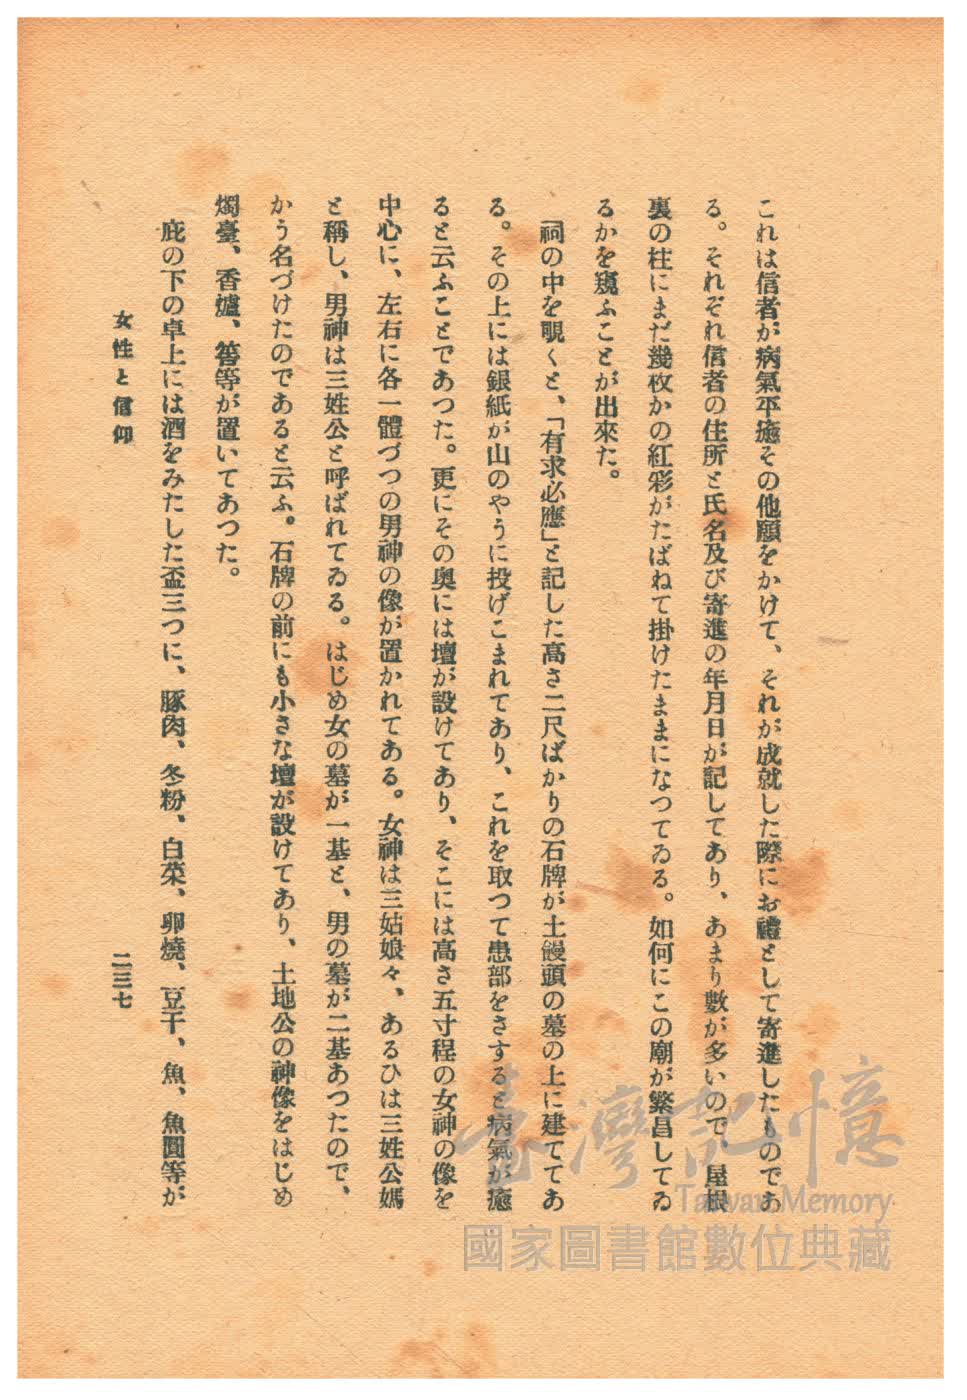 これは信者が病氣平癒その他願をかけて、それが成就した際にお禮として寄進したものであ
る。それぞれ信者の住所と氏名及び寄進の年月日が記してあり、あまり數が多いので、屋根
裏の柱にまだ幾枚かの紅彩がたばねて掛けたままになつてゐる。如何にこの廟が繁昌してゐ
るかを窺ふことが出來た。
祠の中を覗くと、「有求必應」と記した高さ二尺ばかりの石牌が土饅頭の墓の上に建ててあ
る。その上には銀紙が山のやうに投げこまれてあり、これを取つて患部をさすると病氣が癒
ると云ふことであつた。更にその奥には壇が設けてあり、そこには高さ五寸程の女神の像を
中心に、左右に各一體づつの男神の像が置かれてある。女神は三姑娘々、あるひは三姓公媽
と稱し、男神は三姓公と呼ばれてゐる。はじめ女の墓が一基と、男の墓が二基あつたので、
かう名づけたのであると云ふ。石牌の前にも小さな壇が設けてあり、土地公の神像をはじめ
燭臺、香爐、筶等が置いてあつた。
庇の下の卓上には酒をみたした盃三つに、豚肉、冬粉、白菜、卵燒、豆干、魚、魚圓等が
女性と信仰
二三七
臺灣記憶
Taiwan Memory
國家圖書館數位典藏